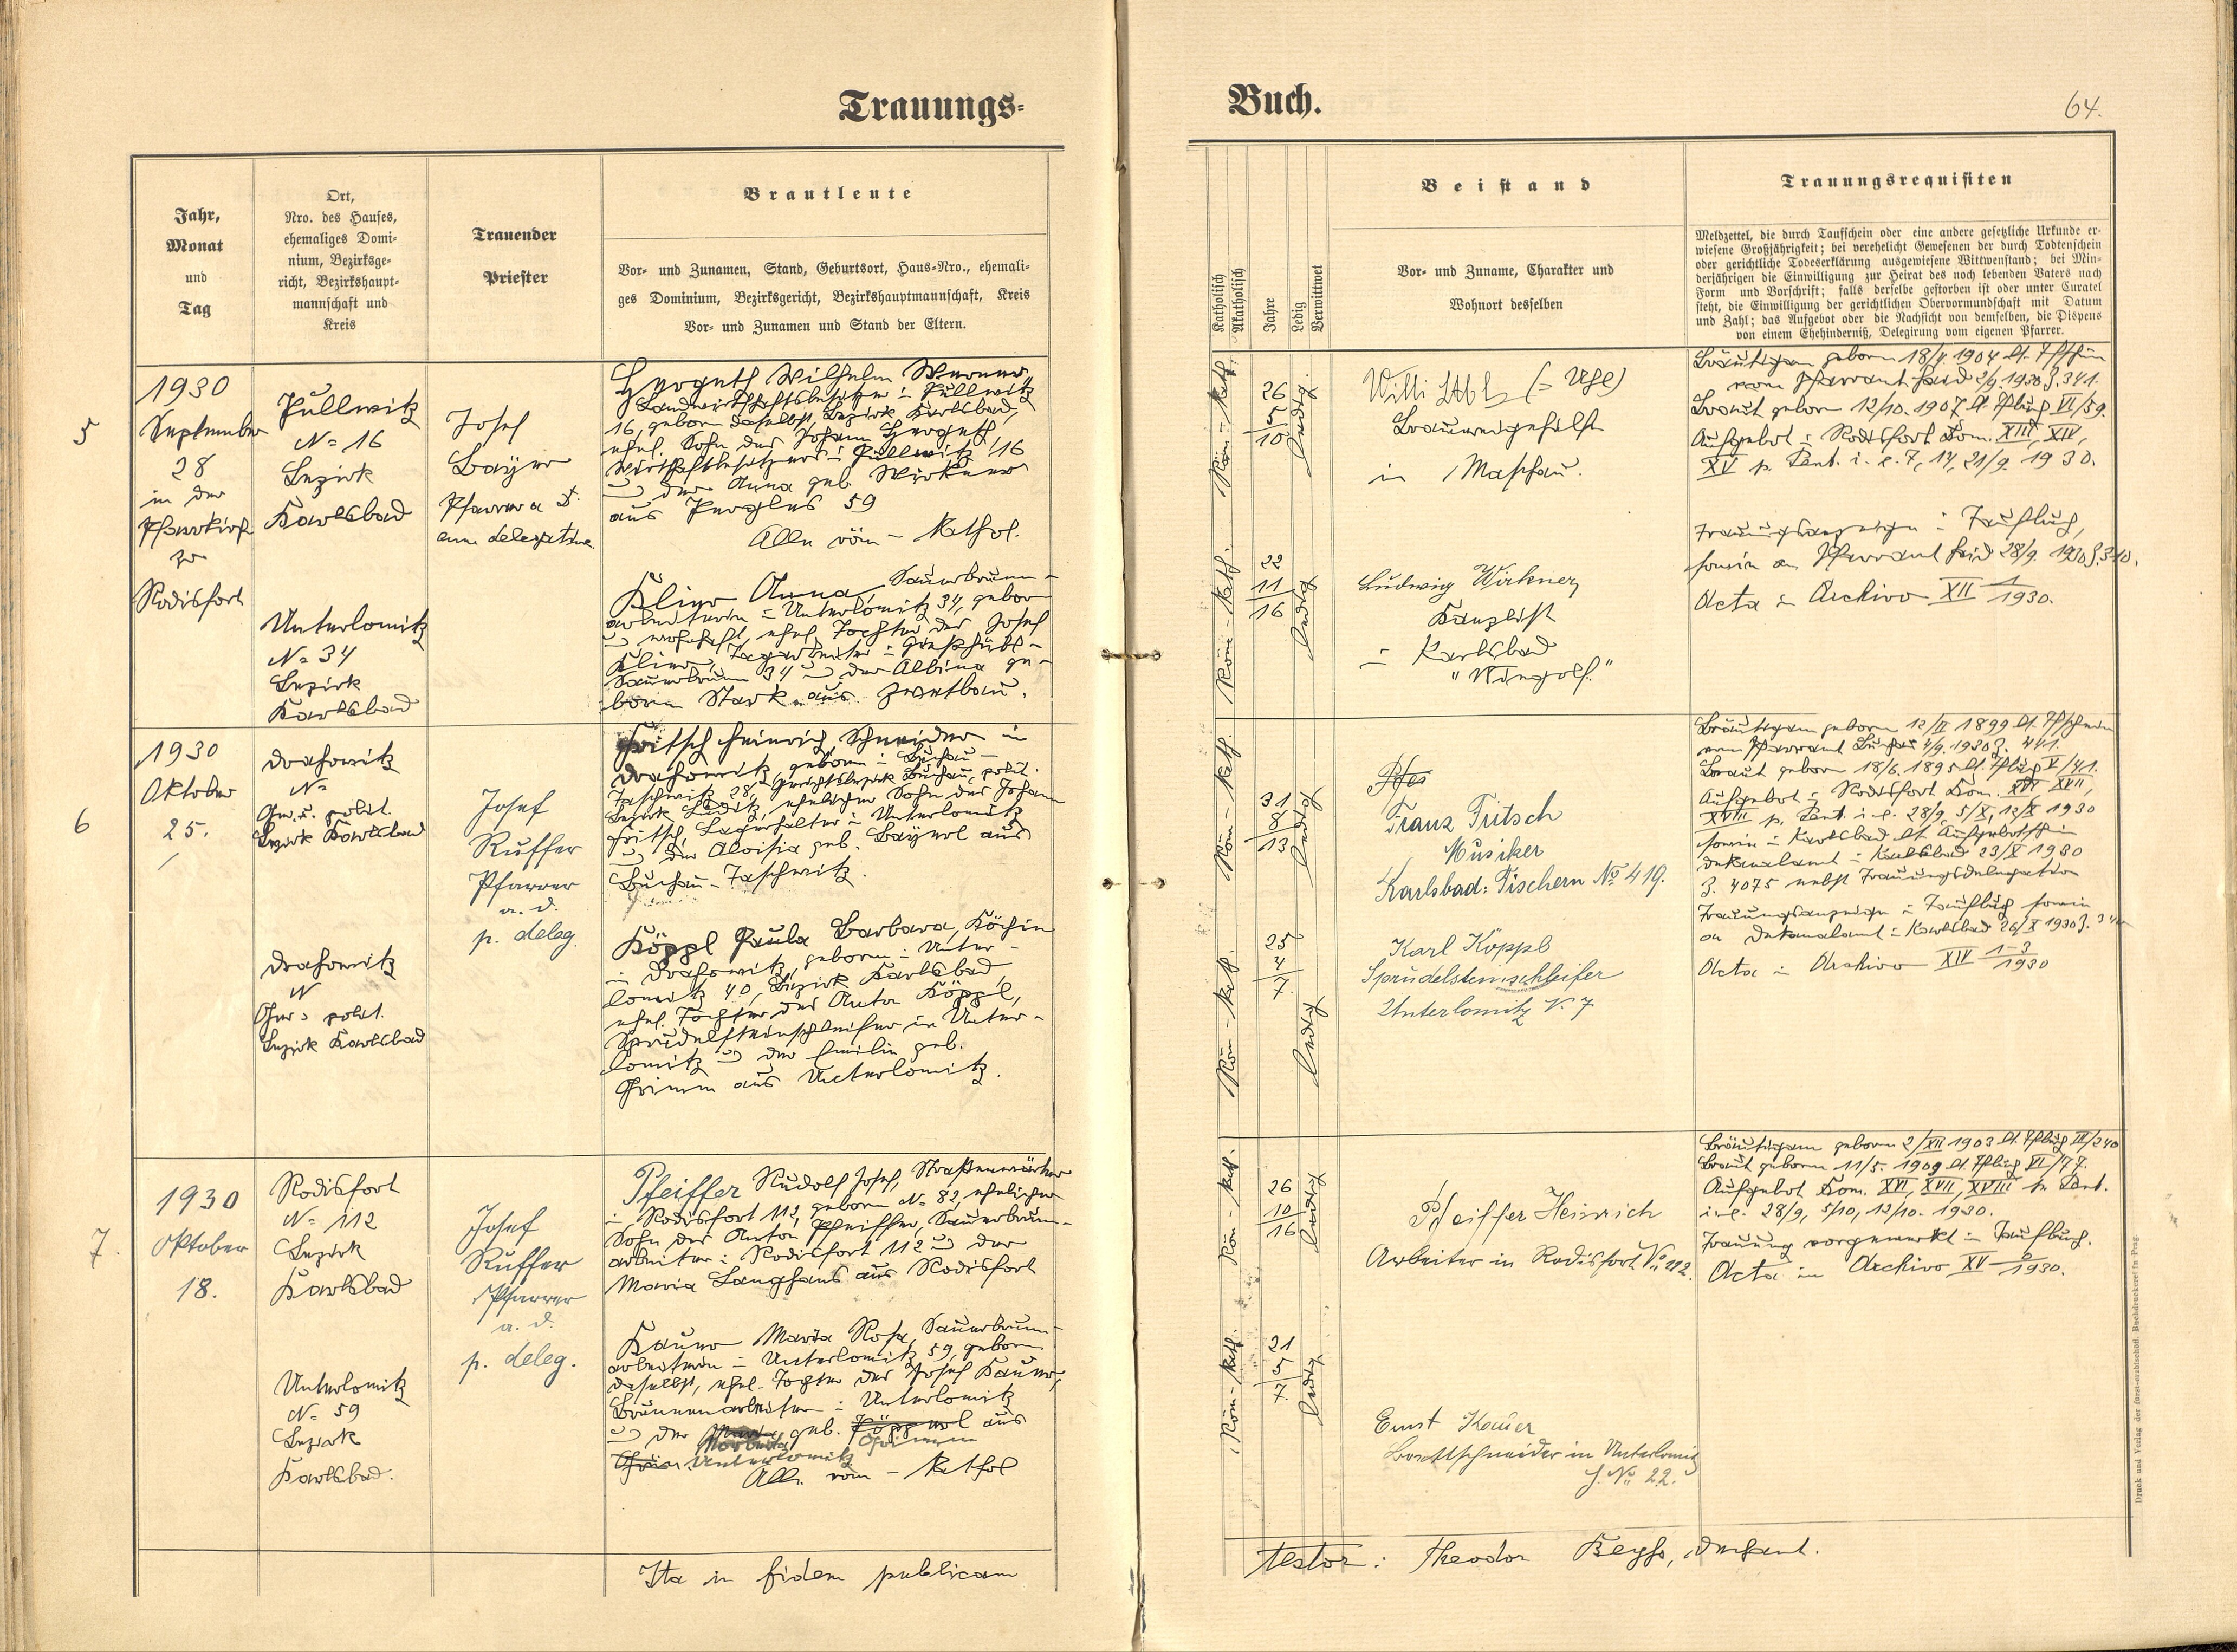 Trauungs-
Jahr,
Monat
und
Tag
Ort,
Nro. des Hauses,
ehemaliges Domi-
nium, Bezirksge-
richt, Bezirkshaupt-
mannschaft und
Kreis
Trauender
Priester
Brautleute
Vor- und Zunamen, Stand, Geburtsort, Haus-Nro., ehemali-
ges Dominium, Bezirksgericht, Bezirkshauptmannschaft, Kreis
Vor- und Zunamen und Stand der Eltern.
5
1930
September
28
in der
Pfarrkirche
zu
Rodisfort
Püllwitz
N= 16
Bezirk
Karlsbad
Unterlomitz
N= 34
Bezirk
Karlsbad
Josef
Bayer
Pfarrer a. D.
cum delegatione.
Hergeth Wilhelm Werner,
Landwirtschaftsbesitzer in Püllwitz
16, geboren daselbst, Bezirk Karlsbad,
ehel. Sohn des Johann Hergeth,
Wirtschaftsbesitzers in Püllwitz 16
und der Anna geb. Wirkner
aus Pergles 59
Alle röm-kathol.
Klier Anna, Sauerbrunn-
arbeiterin in Unterlomitz 34, geboren
und wohnhaft, ehel. Tochter des Josef
Klier, Tagarbeiter in Gießhübl-
Sauerbrunn 34 und der Albina ge-
borene Stark aus Zwetbau.
6
1930
Oktober
25.
Drahowitz
N=
Ger. u. polit.
Bezirk Karlsbad
Drahowitz
N
Ger. u. polit.
Bezirk Karlsbad
Josef
Ruffer
Pfarrer
a. d.
p. deleg.
Fritsch Heinrich, Schneider in
Drahowitz, geboren in Buchau-
Taschwitz 28, Gerichtsbezirk Buchau, polit.
Bezirk Luditz, ehelicher Sohn des Johann
Fritsch, Lagerhalter in Unterlomitz
und der Aloisia geb. Bayerl aus
Buchau-Taschwitz.
Köppl Paula Barbara, Köchin
in Drahowitz, geboren in Unter-
lomitz 40, Bezirk Karlsbad,
ehel. Tochter des Anton Köppl,
Sprudelsteinschleifer in Unter-
lomitz und der Emilie geb.
Grimm aus Unterlomitz.
7.
1930
Oktober
18.
Rodisfort
N= 112
Bezirk
Karlsbad
Unterlomitz
N= 59
Bezirk
Karlsbad.
Josef
Ruffer
Pfarrer
a. d.
p. deleg.
Pfeiffer Rudolf Josef, Straßenwärter
in Rodisfort 112, geboren N= 82, ehelicher
Sohn des Anton Pfeiffer, Sauerbrunn-
arbeiter in Rodisfort 112 und der
Maria Langhans aus Rodisfort
Kauer Maria Rosa, Sauerbrunn-
arbeiterin in Unterlomitz 59, geboren
daselbst, ehel. Tochter des Josef Kauer,
Brunnenarbeiter in Unterlomitz
und der geb. aus
Grimm
Unterlomitz
Alle röm-kathol
Ita in fidem publicam
Buch.
64.
Katholisch
Akatholisch
Jahre
Ledig
Verwittwet
Beistand
Vor- und Zuname, Charakter und
Wohnort desselben
Trauungsrequisiten
Meldzettel, die durch Taufschein oder eine andere gesetzliche Urkunde er-
wiesene Großjährigkeit; bei verehelicht Gewesenen der durch Todtenschein
oder gerichtliche Todeserklärung ausgewiesene Wittwenstand; bei Min-
derjährigen die Einwilligung zur Heirat des noch lebenden Vaters nach
Form und Vorschrift; falls derselbe gestorben ist oder unter Curatel
steht, die Einwilligung der gerichtlichen Obervormundschaft mit Datum
und Zahl; das Aufgebot oder die Nachsicht von demselben, die Dispens
von einem Ehehinderniß, Delegirung vom eigenen Pfarrer.
Röm-kath.
26
5
10
ledig.
Willi Uhl (= Uhl)
Brauereigehilfe
in Maschau.
Bräutigam geboren 18/4 1904 lt. Tfschein
vom Pfarramt 2/9. 1930 Z. 341.
Braut geboren 12/10. 1907 lt. Tfbuch VI/59.
Aufgebot in Rodisfort Dom. XIII, XIV,
XV p. Pent. i. e. 7, 14, 21/9. 1930.
Trauungsanzeige im Taufbuch,
sowie an Pfarramt 28/9. 1930
Acta in Archivo XII 1/1930.
Röm-kath.
22
11
16
ledig
Ludwig Wirkner
Kanzlist
in Karlsbad
"Wingolf."
Röm-kath.
31
8
13
ledig
Franz Fritsch
Musiker
Karlsbad-Fischern No 419.
Bräutigam geboren 12/II 1899 lt. Tfschein
vom Pfarramt Buchau 4/9. 1930 Z. 441.
Braut geboren 18/6. 1895 lt. Tfbuch V/41.
Aufgebot in Rodisfort Dom. XVI, XVII,
XVIII p. Pent. i. e. 28/9, 5/X, 12/X 1930
sowie in Karlsbad lt. Aufgebotsschein
Dekanalamt in Karlsbad 23/X 1930
Z. 4075 nebst Trauungsdelegation
Trauungsanzeige im Taufbuch sowie
an Dekanalamt in Karlsbad 26/X 1930
Acta in Archivo XIV 1-3/1930
Röm-kath.
25
4
7.
ledig
Karl Köppl
Sprudelsteinschleifer
Unterlomitz N. 7
Röm-kath.
26
10
16
ledig
Pfeiffer Heinrich
Arbeiter in Rodisfort No 112.
Bräutigam geboren 2/XII 1903 lt. Tfbuch III/240
Braut geboren 11/5. 1909 lt. Tfbuch VI/77.
Aufgebot Dom. XVI, XVII, XVIII p. Pent.
i. e. 28/9, 5/10, 12/10. 1930.
Trauung vorgemerkt im Taufbuch.
Acta in Archivo XV 2/1930.
Röm-kath.
21
5
7.
ledig
Ernst Kauer
Brettschneider in Unterlomitz
No 22.
testor: Theodor
Druck und Verlag der fürst-erzbischöfl. Buchdruckerei in Prag.